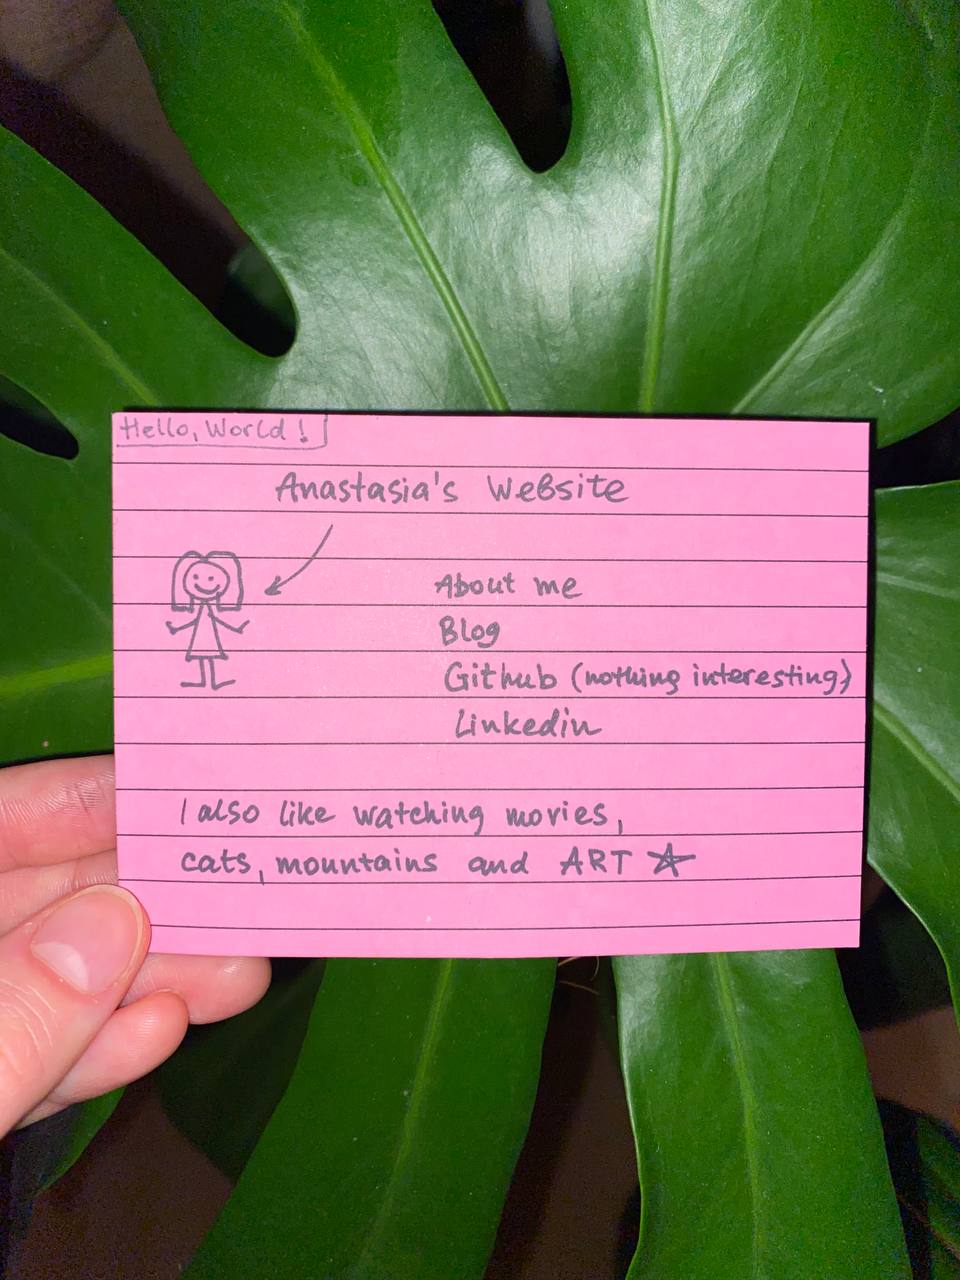 Hello, World!
Anastasia's Website
About me
Blog
Github (nothing interesting)
Linkedin
I also like watching movies,
cats, mountains and ART ☆